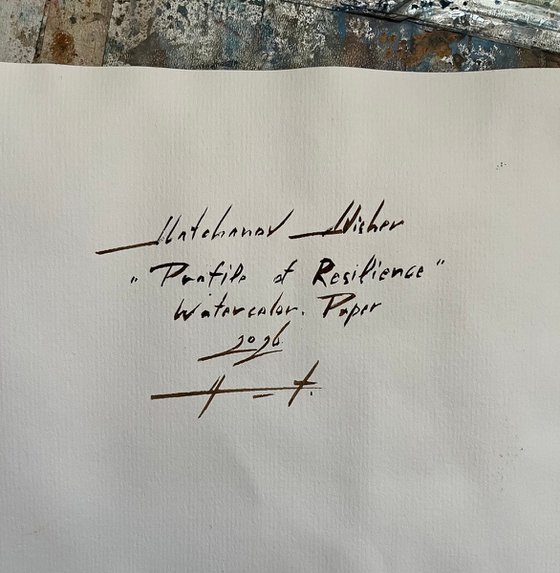 Matchanov Alisher
"Profile of Resilience"
Watercolor. Paper
2026